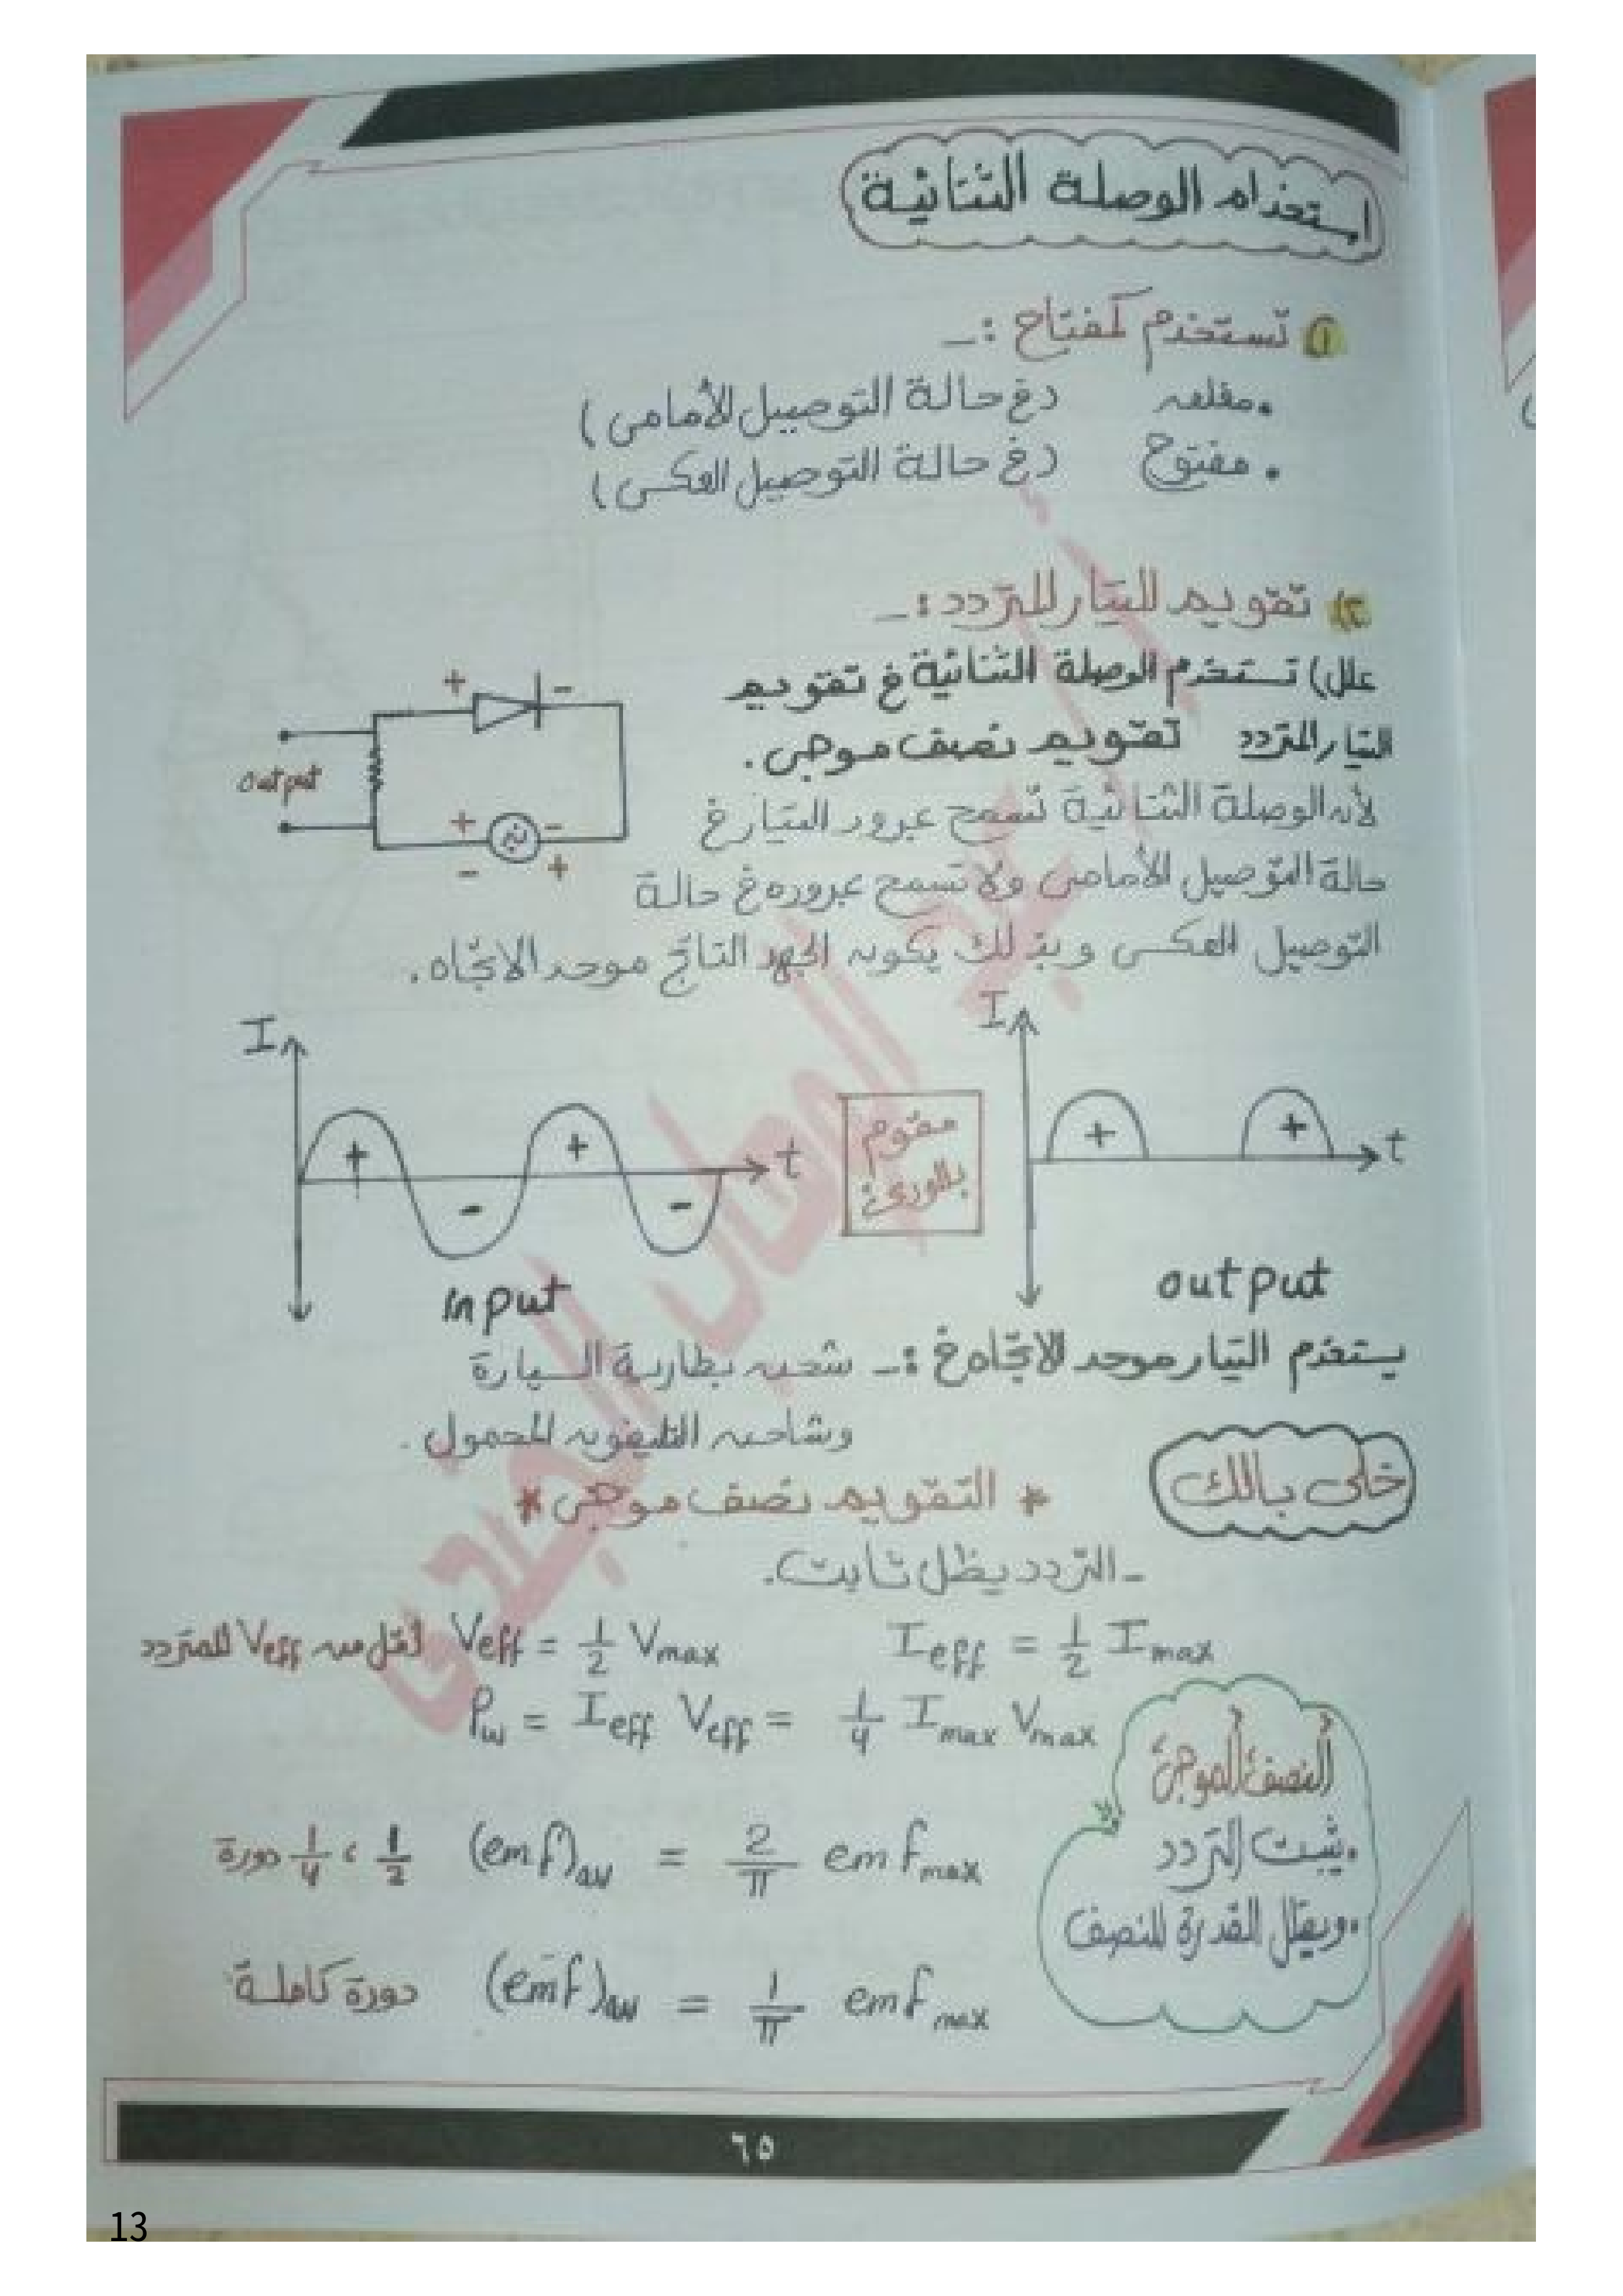 استخدام الوصلة الثنائية
١) تستخدم كمفتاح :-
• مغلق (في حالة التوصيل الأمامى)
• مفتوح (في حالة التوصيل العكسى)
٢) تقويم التيار المتردد :-
علل) تستخدم الوصلة الثنائية في تقويم
التيار المتردد تقويم نصف موجى .
لأن الوصلة الثنائية تسمح بمرور التيار في
حالة التوصيل الأمامى ولا تسمح بمروره في حالة
التوصيل العكسى وبذلك يكون الجهد الناتج موحد الاتجاه .
+ -
output
+ -
- +
I
+ - + -
t
input
مقوم
بللورى
I
+ +
t
output
يستخدم التيار موحد الاتجاه في :- شحن بطارية السيارة
وشاحن التليفون المحمول .
خلى بالك
* التقويم نصف موجى *
- التردد يظل ثابت .
I eff = 1/2 I max
Veff = 1/2 Vmax أقل من Veff للمتردد
Pw = Ieff Veff = 1/4 Imax Vmax
النصف الموجى
• يثبت التردد
• ويقلل القدرة للنصف
(emf)av = 2/π emf max 1/2 ، 1/4 دورة
(emf)av = 1/π emf max دورة كاملة
٦٥
13